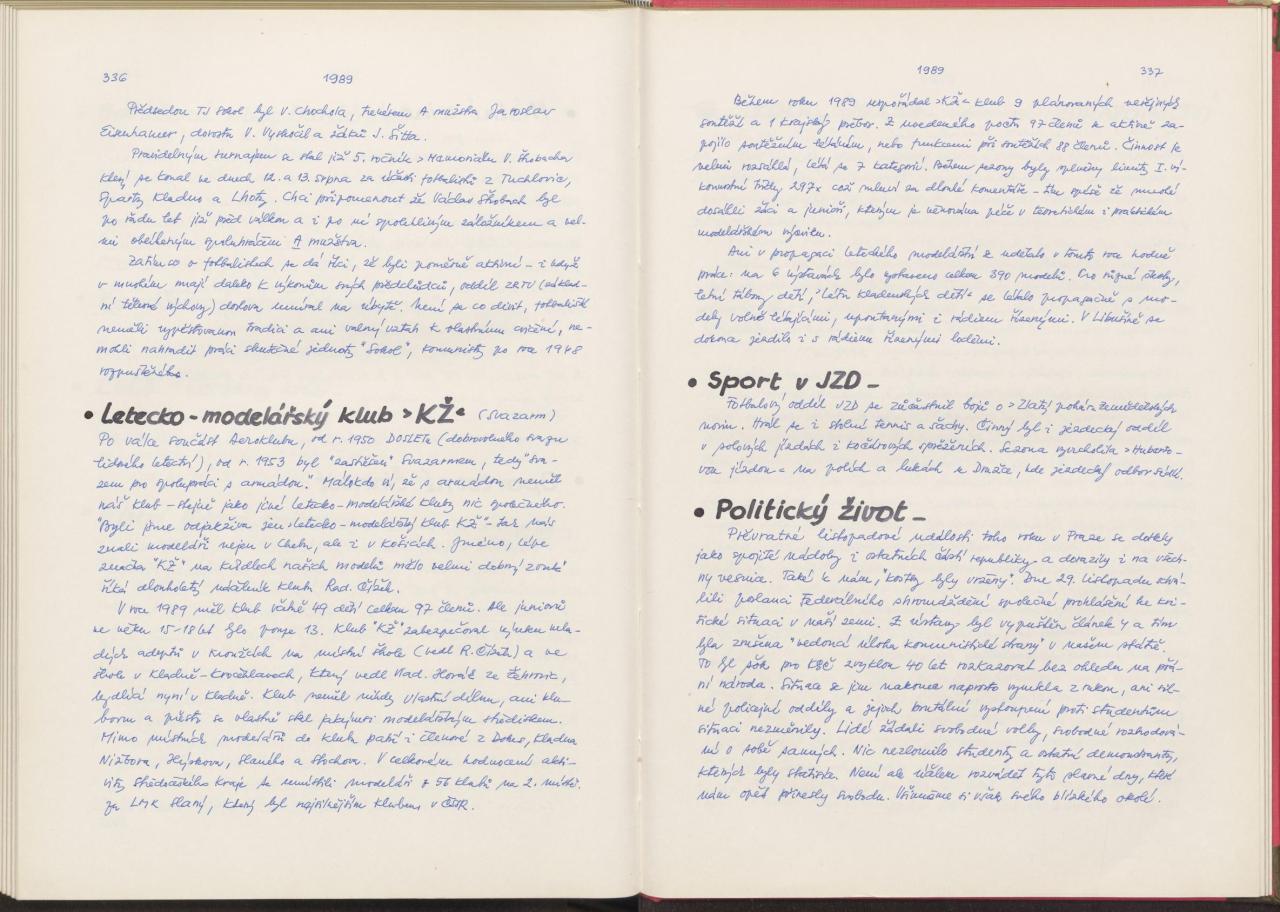 336
1989
Předsedou TJ Sokol byl V. Chochola, trenérem A mužstva Jaroslav
Eisenhamer, dorostu V. Vyskočil a žáků J. Šitta.
Pravidelným turnajem se stal již 5. ročník >Memoriálu V. Škobacha
který se konal ve dnech 12. a 13. srpna za účasti fotbalistů z Tuchlovic,
Sparty Kladno a Lhoty. Chci připomenout že Václav Škobach byl
po řadu let již před válkou a i po ní spolehlivým záložníkem a vel-
mi obětavým spoluhráčem A mužstva.
Zatímco o fotbalistech se dá říci, že byli poměrně aktivní – i když
v mnohém mají daleko k výkonům svých předchůdců, oddíl ZRTV (základ-
ní tělesné výchovy) doslova umíral na úbytě. Není se co divit, fotbalisté
neměli vypěstovanou tradici a ani valný vztah k vlastnímu cvičení, ne-
mohli nahradit práci skutečné jednoty "Sokol", komunisty po roce 1948
rozpuštěného.
• Letecko-modelářský klub >KŽ< (Svazarm)
Po válce součást Aeroklubu, od r. 1950 DOSLETu (dobrovolného svazu
lidového letectví), od r. 1953 byl "zastřešen" Svazarmem, tedy "Sva-
zem pro spolupráci s armádou." Málokdo ví, že s armádou neměl
náš klub – stejně jako jiné letecko-modelářské kluby nic společného.
"Byli jsme odjakživa jen >letecko-modelářský klub KŽ" – tak nás
znali modeláři nejen v Chebu, ale i v Košicích. Jméno, lépe
značka "KŽ" na křídlech našich modelů mělo velmi dobrý zvuk"
říká dlouholetý náčelník klubu Rad. Čížek.
V roce 1989 měl klub včetně 49 dětí celkem 97 členů. Ale juniorů
ve věku 15-18 let bylo pouze 13. Klub "KŽ" zabezpečoval výuku mla-
dých adeptů v kroužcích na místní škole (vedl R. Čížek) a ve
škole v Kladně-Kročehlavech, který vedl Vlad. Horák ze Žehrovic,
bydlící nyní v Kladně. Klub neměl nikdy vlastní dílnu, ani klu-
bovnu a přesto se vlastně stal jakýmsi modelářským střediskem.
Mimo místních modelářů do klubu patří i členové z Doks, Kladna
Nižbora, Hýskova, Slaného a Stochova. V celkovém hodnocení akti-
vity Středočeského kraje se umístili modeláři z 56 klubů na 2. místě.
za LMK Slaný, který byl nejsilnějším klubem v ČSR.
1989
337
Během roku 1989 uspořádal >KŽ< klub 9 plánovaných veřejných
soutěží a 1 krajský přebor. Z uvedeného počtu 97 členů se aktivně za-
pojilo soutěžním létáním, nebo funkcemi při soutěžích 88 členů. Činnost je
velmi rozsáhlá, létá se 7 kategorií. Během sezony byly splněny limity I. vý-
konnostní třídy 297x což mluví za dlouhé komentáře – tím spíše že mnohé
dosáhli žáci a junioři, kterým je věnována péče v teoretickém i praktickém
modelářském výcviku.
Ani v propagaci leteckého modelářství se udělalo v tomto roce hodně
práce: na 6 výstavách bylo vystaveno celkem 390 modelů. Pro různé školy,
letní tábory dětí, >Léto kladenských dětí< se létalo propagačně s mo-
dely volně létajícími, upoutanými i rádiem řízenými. V Libušíně se
dokonce jezdilo i s rádiem řízenými loděmi.
• Sport v JZD –
Fotbalový oddíl JZD se zúčastnil bojů o >Zlatý pohár< zemědělských
novin. Hrál se i stolní tennis a šachy. Činný byl i jezdecký oddíl
v polových jízdách i kočárových spřeženích. Sezona vyvrcholila >Huberto-
vou jízdou< na polích a lukách u Družce, kde jezdecký odbor sídlí.
• Politický život –
Převratné listopadové události toho roku v Praze se dotkly
jako spojité nádoby i ostatních částí republiky a dorazily i na všech-
ny vesnice. Také k nám, "kostky byly vrženy". Dne 29. listopadu schvá-
lili poslanci Federálního shromáždění společné prohlášení ke kri-
tické situaci v naší zemi. Z ústavy byl vypuštěn článek 4 a tím
byla zrušena "vedoucí úloha komunistické strany" v našem státě.
To byl šok pro KSČ zvyklou 40 let rozkazovat bez ohledu na přá-
ní národa. Situace se jim nakonec naprosto vymkla z rukou, ani sil-
né policejní oddíly a jejich brutální vystoupení proti studentům
situaci nezměnily. Lidé žádali svobodné volby, svobodné rozhodová-
ní o sobě samých. Nic nezlomilo studenty a ostatní demonstranty,
kterých byly statisíce. Není ale účelem rozvádět tyto slavné dny, které
nám opět přinesly svobodu. Všimněme si však svého blízkého okolí.